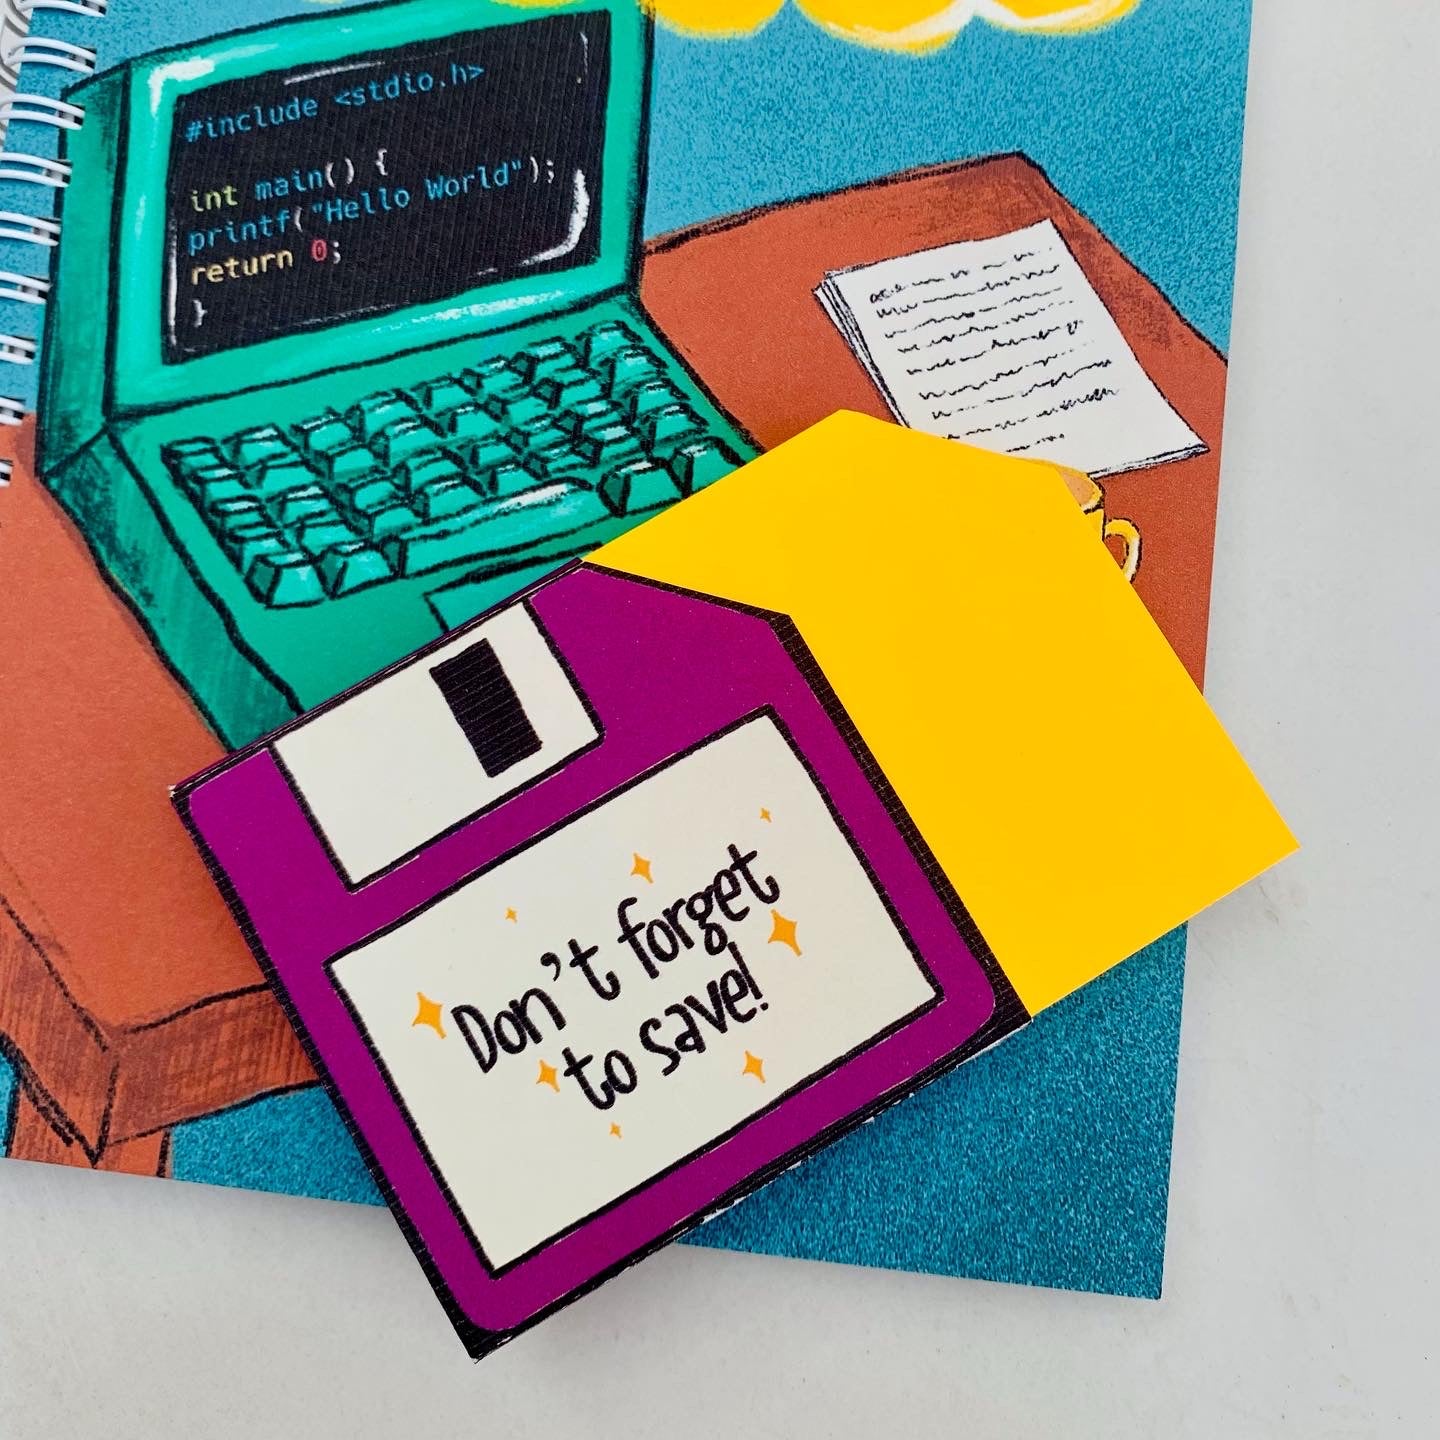 #include <stdio.h>
int main() {
printf("Hello World");
return 0;
}
Don't forget
to save!